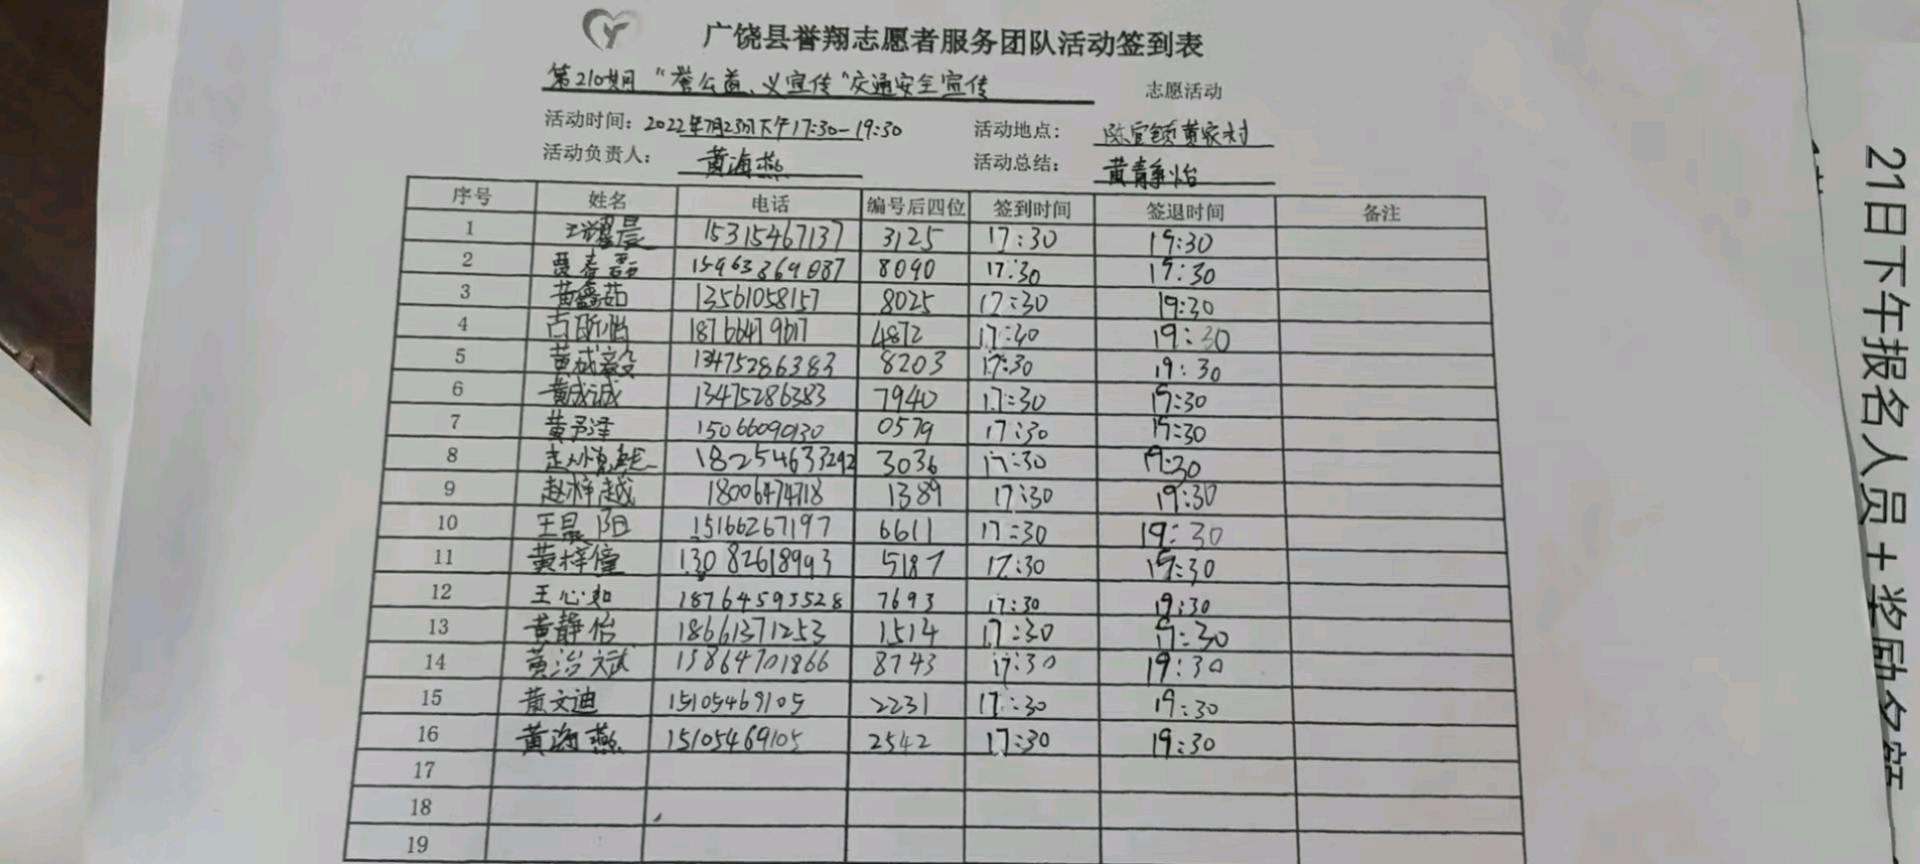 广饶县誉翔志愿者服务团队活动签到表
第210期 "誉公益、义宣传"交通安全宣传 志愿活动
活动时间: 2022年7月23日下午17:30-19:30 活动地点: 陈官镇黄家村
活动负责人: 黄海燕 活动总结: 黄静怡
序号 姓名 电话 编号后四位 签到时间 签退时间 备注
1 王耀晨 15315467137 3125 17:30 19:30
2 15963869087 8090 17:30 19:30
3 黄鑫茹 13561058157 8025 17:30 19:30
4 18766479617 4872 17:30 19:30
5 黄成毅 13475286383 8203 17:30 19:30
6 黄成诚 13475286383 7940 17:30 19:30
7 黄予泽 15066090130 0579 17:30 19:30
8 18254633292 3036 17:30 19:30
9 赵梓越 18006474718 1389 17:30 19:30
10 王晨阳 15166267197 6611 17:30 19:30
11 黄梓僮 13082618993 5187 17:30 19:30
12 王心如 18764593528 7693 17:30 19:30
13 黄静怡 18661371253 1514 17:30 19:30
14 黄治斌 13864701866 8743 17:30 19:30
15 黄文迪 15105469105 2231 17:30 19:30
16 黄海燕 15105469105 2542 17:30 19:30
17
18
19
21日下午报名人员+奖励名额